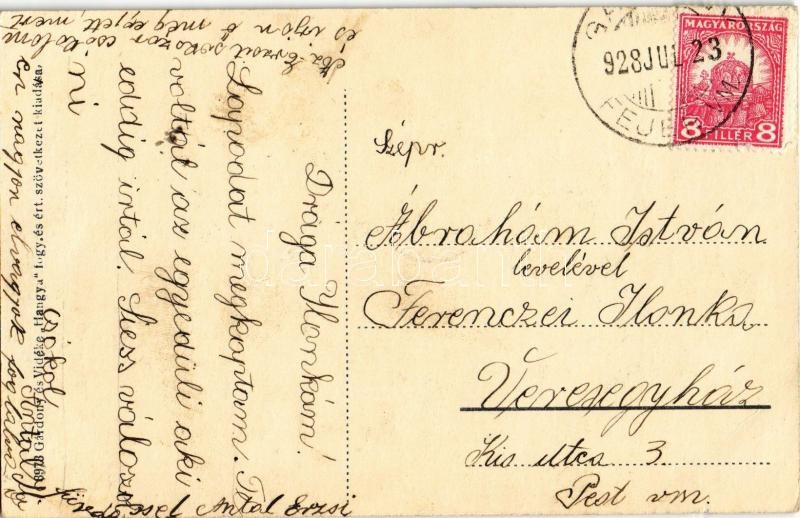 928 JUL 23
FEJÉR VM.
MAGYARORSZÁG
8 FILLÉR 8
Szépr.
Ábrahám István
levelével
Ferenczei Ilonka
Veresegyház
Kis utca 3.
Pest vm.
Drága Ilonkám!
Lapodat megkaptam. Te
voltál az egyedüli aki
eddig irtál. Siess válaszol
ni
Antal Erzsi
és irjon ő még egyet, mert
én nagyon elvagyok
8973 Gárdony és Vidéke „Hangya" fogy. és ért. szövetkezet kiadása.
darabanth